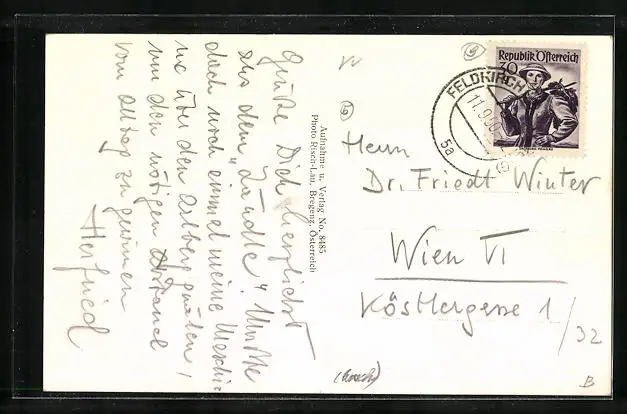 Grüße Dich herzlichst
aus dem "Ländle". Mußte
doch noch einmal meine Maschi-
ne über den Arlberg
um den nötigen Abstand
vom Alltag zu gewinnen
Herfried
Aufnahme u. Verlag No. 8485
Photo Risch-Lau, Bregenz, Österreich
Republik Österreich
30
FELDKIRCH
5a
Herrn
Dr. Friedl Winter
Wien VI
Köstlergasse 1
/32
B